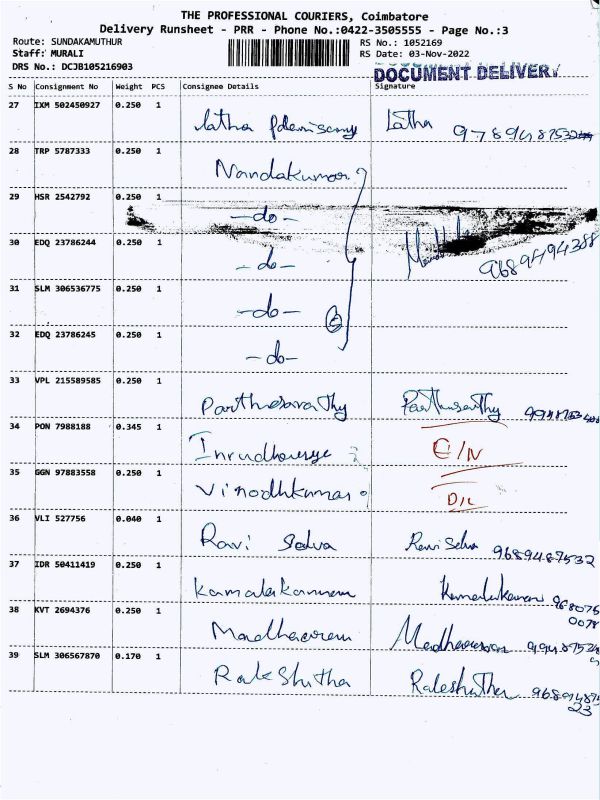 THE PROFESSIONAL COURIERS, Coimbatore
Delivery Runsheet - PRR - Phone No.:0422-3505555 - Page No.:3
Route: SUNDAKAMUTHUR RS No.: 1052169
Staff: MURALI RS Date: 03-Nov-2022
DRS No.: DCJB105216903 DOCUMENT DELIVERY
S No Consignment No Weight PCS Consignee Details Signature
27 IXM 502450927 0.250 1 Latha Latha
28 TRP 5787333 0.250 1 Nandakumar
29 HSR 2542792 0.250 1 -do-
30 EDQ 23786244 0.250 1 -do- 9689494388
31 SLM 306536775 0.250 1 -do-
32 EDQ 23786245 0.250 1 -do-
33 VPL 215589585 0.250 1 Parthasarathy Parthasarthy
34 PON 7988188 0.345 1
35 GGN 97883558 0.250 1 Vinodhkumar D/L
36 VLI 527756 0.040 1 Ravi Selva Ravi Selva 9689487532
37 IDR 50411419 0.250 1 Kamalakannan
38 KVT 2694376 0.250 1
39 SLM 306567870 0.170 1 RakShitha